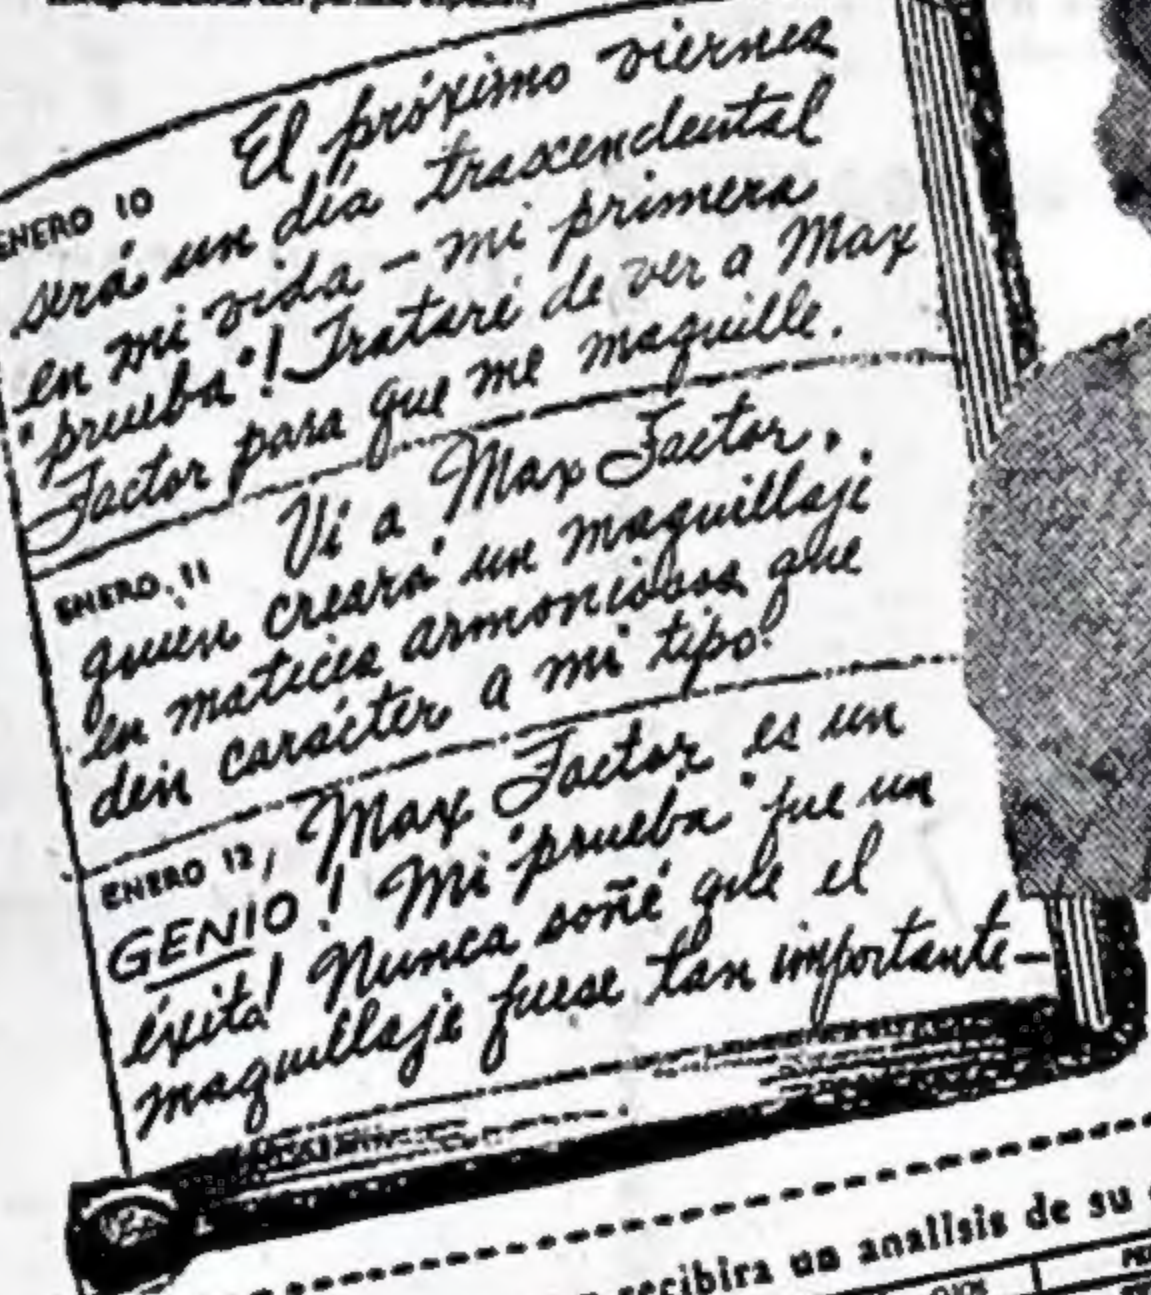 ENERO 10 El próximo viernes
será un día trascendental
en mi vida — mi primera
"prueba"! Trataré de ver a Max
Factor para que me maquille.
ENERO, 11 Vi a Max Factor,
quien creará un maquillaje
en matices armoniosos que
den carácter a mi tipo!
ENERO 12, Max Factor es un
GENIO! Mi "prueba" fue un
éxito! Nunca soñé que el
maquillaje fuese tan importante—
recibira un analisis de su
OJOS